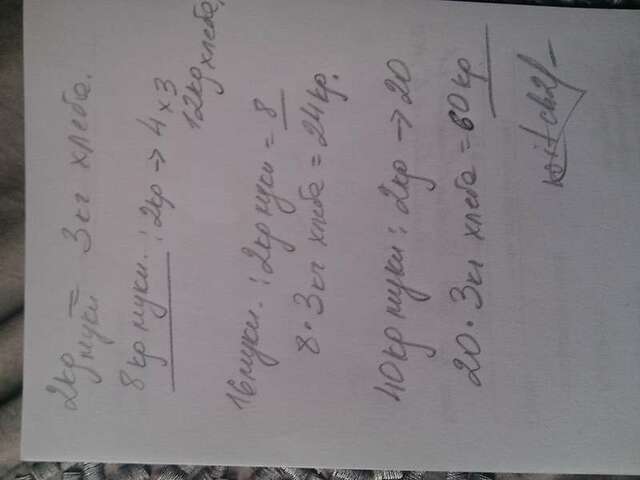 2кг муки = 3кг хлеба.
8кг муки. : 2кг → 4 × 3
12кг хлеба,
16муки. : 2кг муки = 8
8 · 3кг хлеба = 24кг.
40кг муки : 2кг → 20
20 · 3кг хлеба = 60кг